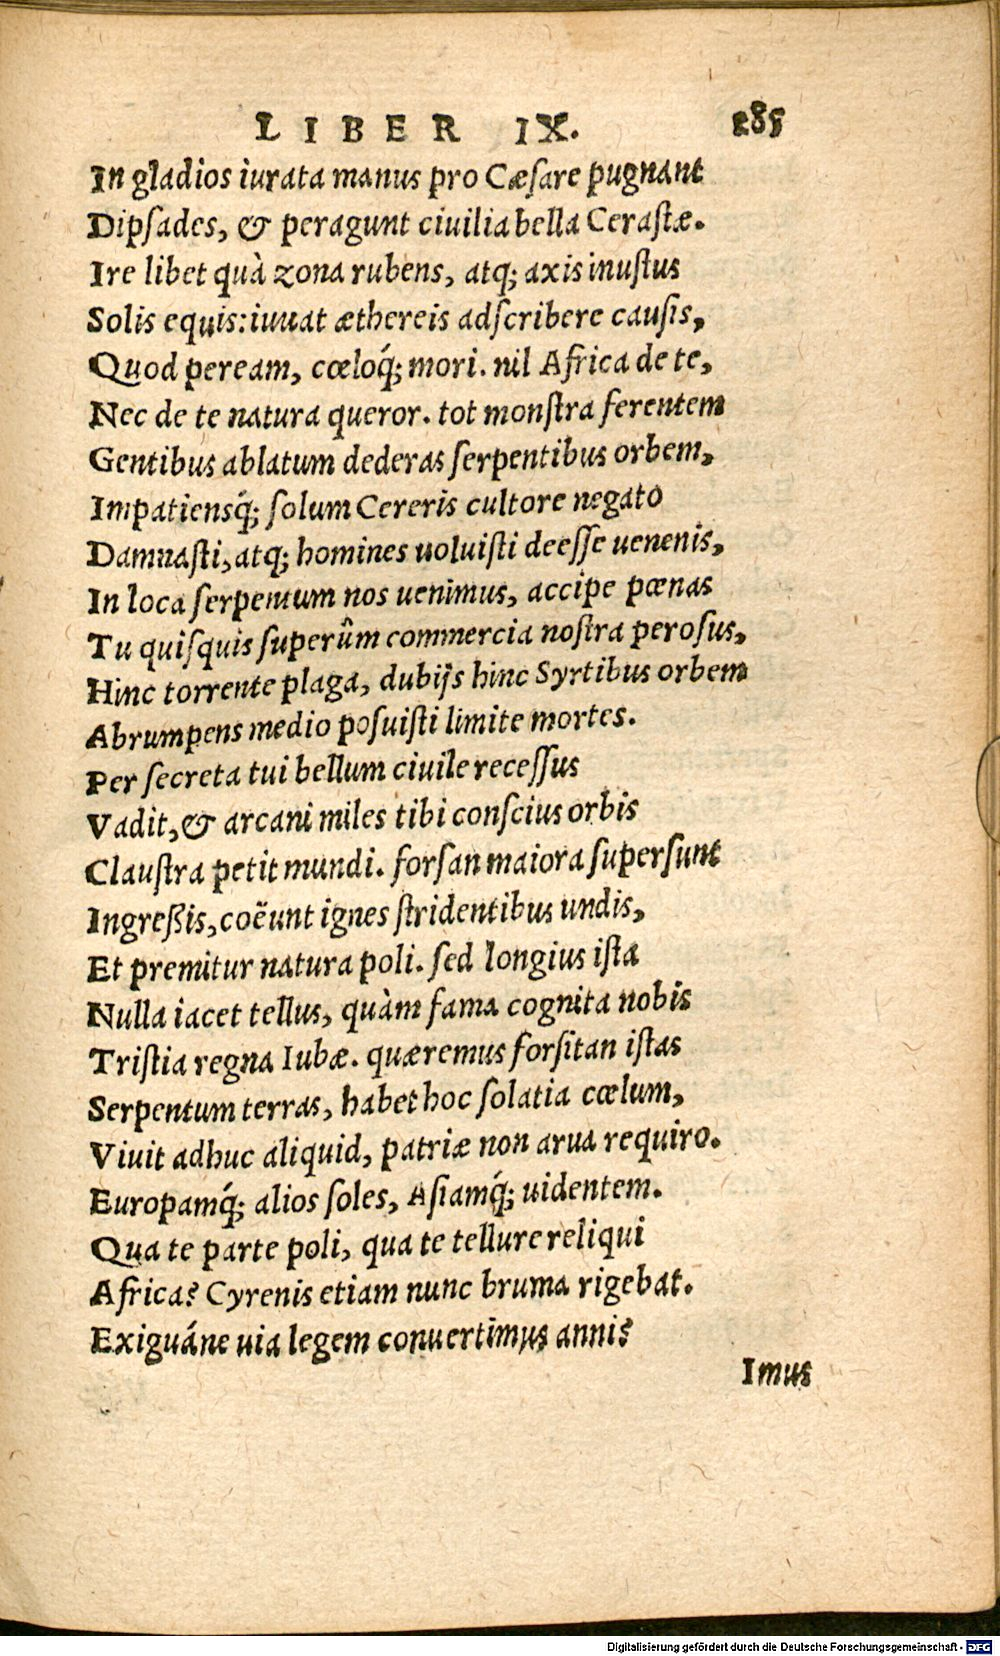 LIBER IX. 285
In gladios iurata manus pro Cæsare pugnant
Dipsades, & peragunt ciuilia bella Cerastæ.
Ire libet quà zona rubens, atq; axis inustus
Solis equis: iuuat æthereis adscribere causis,
Quod peream, cœloq́; mori. nil Africa de te,
Nec de te natura queror. tot monstra ferentem
Gentibus ablatum dederas serpentibus orbem,
Impatiensq́; solum Cereris cultore negato
Damnasti, atq; homines uoluisti deesse uenenis,
In loca serpentum nos uenimus, accipe pœnas
Tu quisquis superûm commercia nostra perosus,
Hinc torrente plaga, dubijs hinc Syrtibus orbem
Abrumpens medio posuisti limite mortes.
Per secreta tui bellum ciuile recessus
Vadit, & arcani miles tibi conscius orbis
Claustra petit mundi. forsan maiora supersunt
Ingreßis, coëunt ignes stridentibus undis,
Et premitur natura poli. sed longius ista
Nulla iacet tellus, quàm fama cognita nobis
Tristia regna Iubæ. quæremus forsitan istas
Serpentum terras, habet hoc solatia cœlum,
Viuit adhuc aliquid, patriæ non arua requiro.
Europamq́; alios soles, Asiamq́; uidentem.
Qua te parte poli, qua te tellure reliqui
Africa? Cyrenis etiam nunc bruma rigebat.
Exiguáne uia legem conuertimus annis
Imus
Digitalisierung gefördert durch die Deutsche Forschungsgemeinschaft - DFG